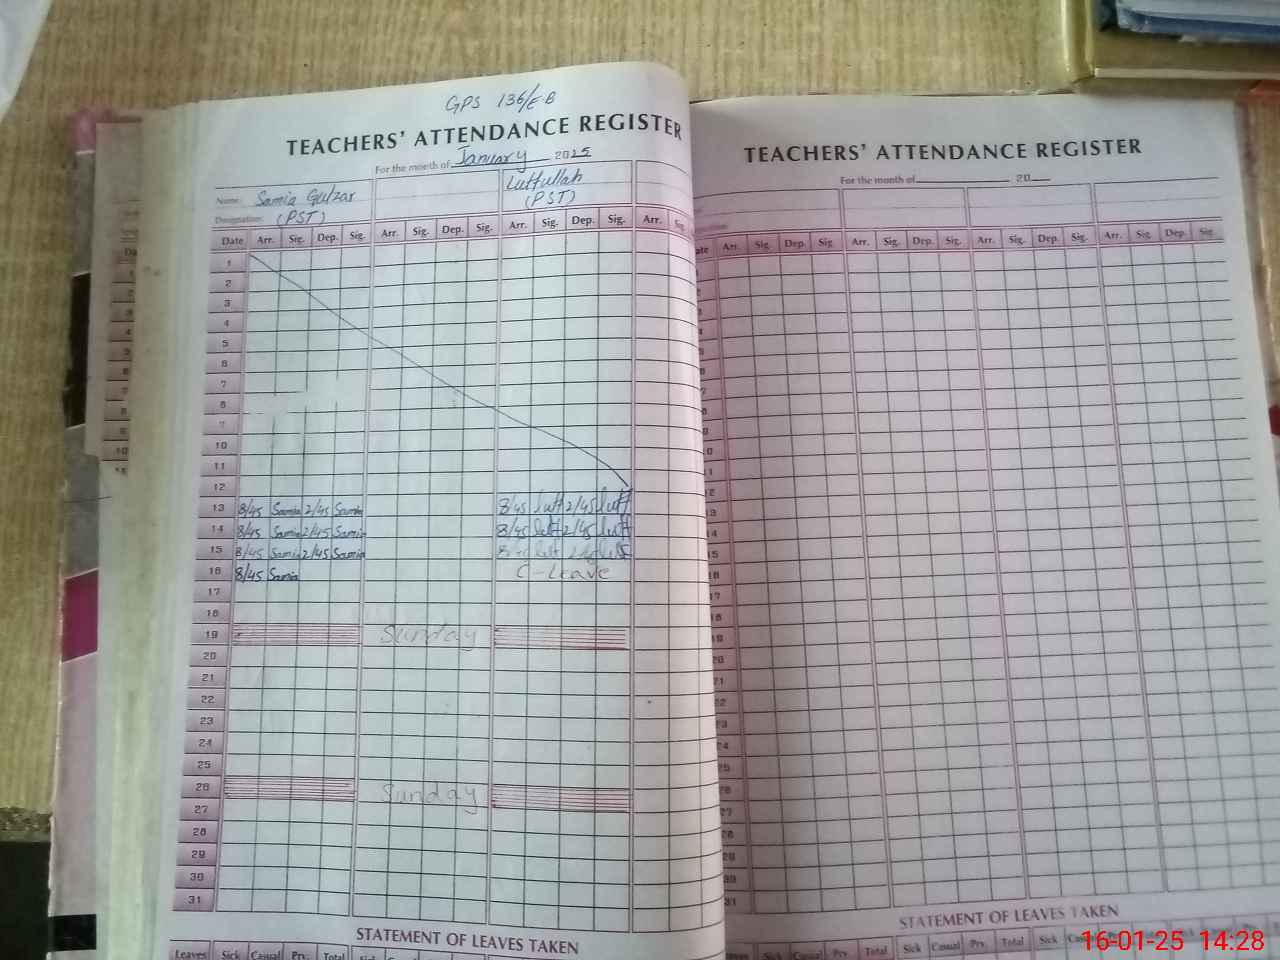 GPS 136/E-B
TEACHERS' ATTENDANCE REGISTER
For the month of January 2025
Name: Samia Gulzar Lutfullah
Designation: (PST) (PST)
Date Arr. Sig. Dep. Sig. Arr. Sig. Dep. Sig. Arr. Sig. Dep. Sig. Arr. Sig.
1
2
3
4
5
6
7
8
9
10
11
12
13 8/45 Samia 2/45 Samia 8/45 lutf 2/45 lutf
14 8/45 Samia 2/45 Samia 8/45 lutf 2/45 lutf
15 8/45 Samia 2/45 Samia lutf lutf
16 8/45 Samia C-Leave
17
18
19 Sunday
20
21
22
23
24
25
26 Sunday
27
28
29
30
31
STATEMENT OF LEAVES TAKEN
Leaves Sick Casual Prv. Total Sick Casual Prv. Total
TEACHERS' ATTENDANCE REGISTER
For the month of 20
Arr. Sig. Dep. Sig. Arr. Sig. Dep. Sig. Arr. Sig. Dep. Sig. Arr. Sig. Dep. Sig.
STATEMENT OF LEAVES TAKEN
Sick Casual Prv. Total Sick Casual Prv. Total Sick
16-01-25 14:28